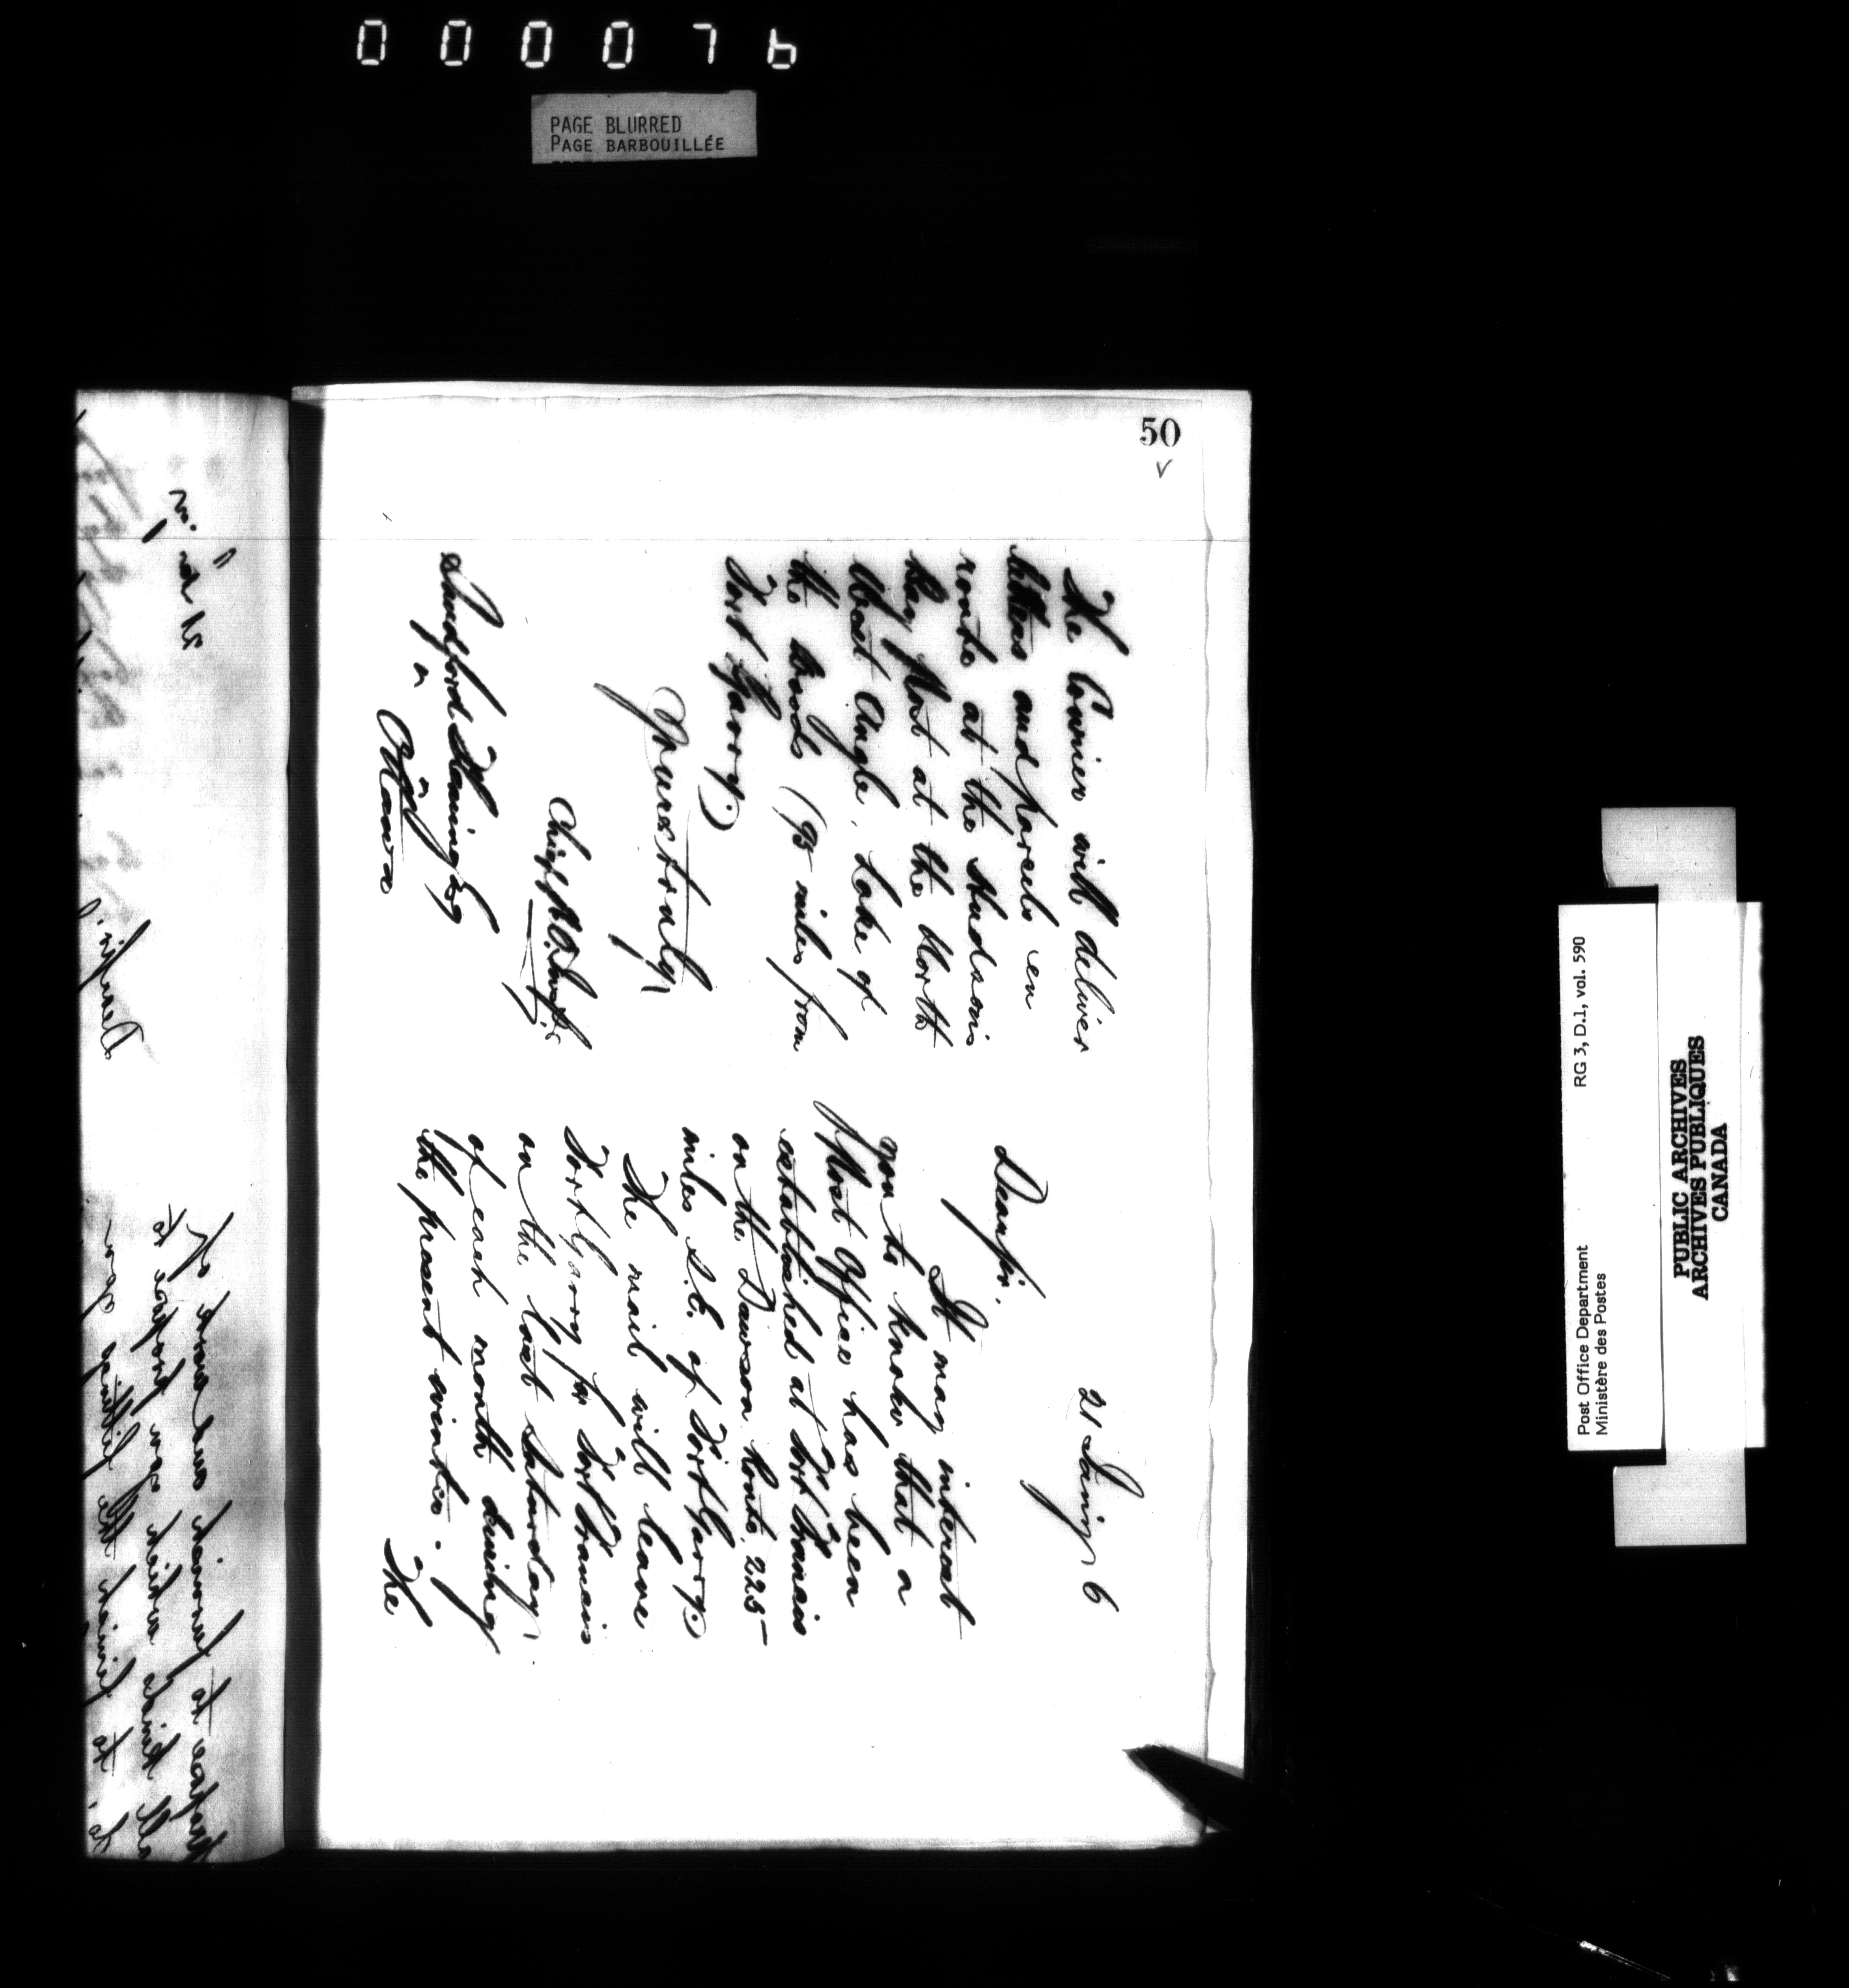 000076
PAGE BLURRED
PAGE BARBOUILLÉE
50
The Courier will deliver
letters and parcels en
route at the Hudson's
Bay Post at the North
West Angle, Lake of
the Woods (95 miles from
Fort Garry.)
Yours truly
Chief P.O. Insptr.
Sandford Fleming Esq
Ottawa
21 Jany 6
Dear Sir.
It may interest
you to know that a
Post Office has been
established at Fort Francis
on the Dawson Route, 225
miles S.E. of Fort Garry.)
The mail will leave
Fort Garry for Fort Francis
on the last Saturday
of each month during
the present winter.
The
Post Office Department
Ministère des Postes
RG 3, D.1, vol. 590
PUBLIC ARCHIVES
ARCHIVES PUBLIQUES
CANADA